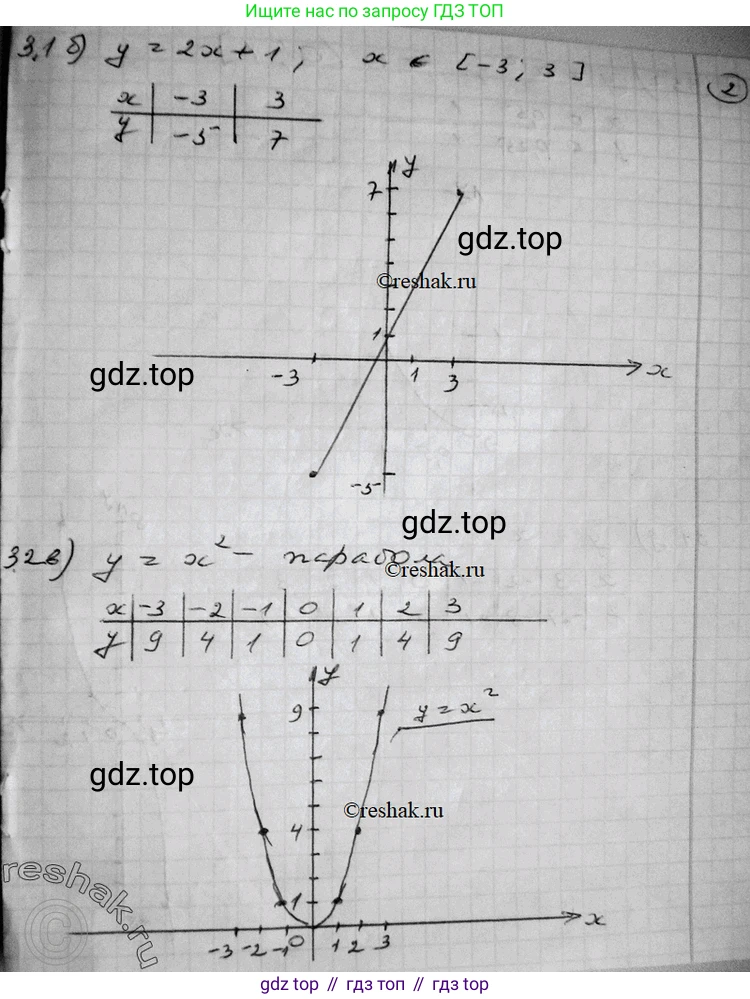 Ищите нас по запросу ГДЗ ТОП
3.1 б) y = 2x + 1; x ∈ [-3; 3]
2
x | -3 | 3
y | -5 | 7
y
7
gdz.top
©reshak.ru
1
gdz.top
-3 1 3 x
-5
gdz.top
3.2 в) y = x² - парабола
©reshak.ru
x | -3 | -2 | -1 | 0 | 1 | 2 | 3
y | 9 | 4 | 1 | 0 | 1 | 4 | 9
y
9
y = x²
gdz.top
©reshak.ru
4
reshak.ru
©
1
x
-3 -2 -1 0 1 2 3
gdz.top // гдз топ // gdz top